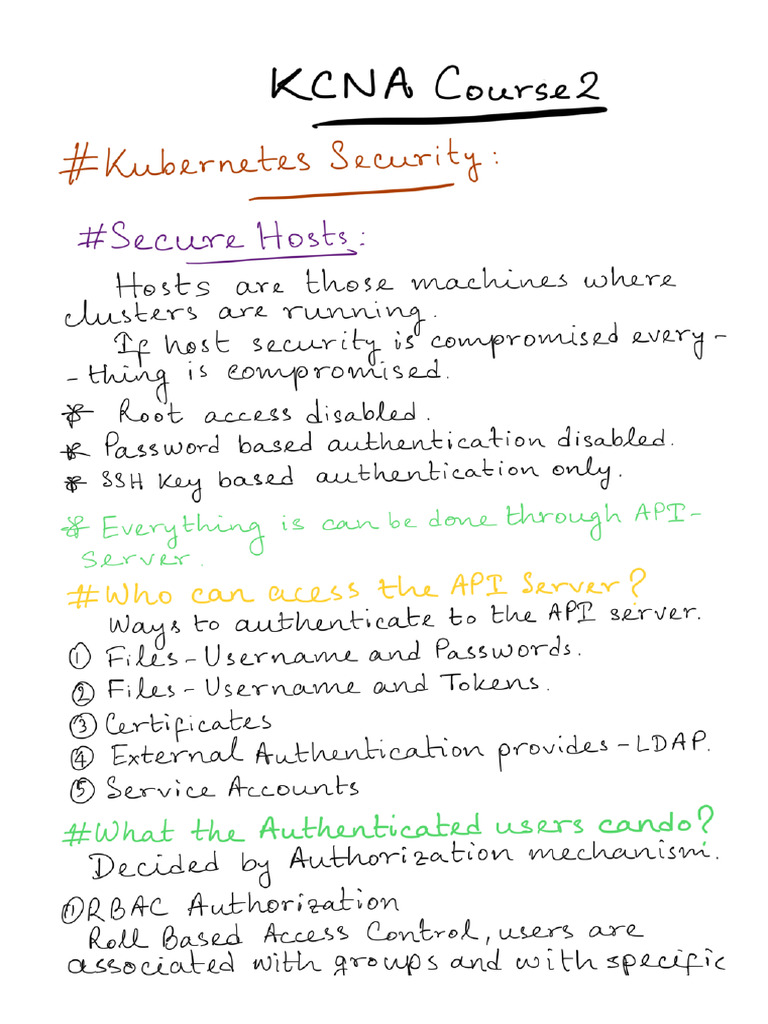 KCNA Course2
#Kubernetes Security:
#Secure Hosts:
Hosts are those machines where
clusters are running.
If host security is compromised every-
-thing is compromised.
* Root access disabled.
* Password based authentication disabled.
* SSH Key based authentication only.
* Everything is can be done through API-
server.
#Who can acess the API Server?
Ways to authenticate to the API server.
① Files-Username and Passwords.
② Files-Username and Tokens.
③ Certificates
④ External Authentication provides-LDAP.
⑤ Service Accounts
#What the Authenticated users cando?
Decided by Authorization mechanism.
① RBAC Authorization
Roll Based Access Control, users are
associated with groups and with specific